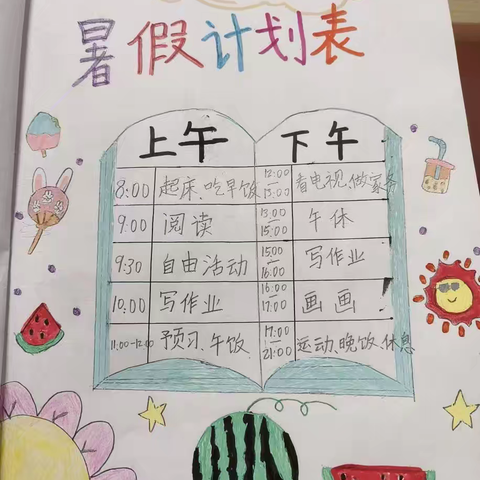 暑假计划表
上午 下午
8:00 起床、吃早饭 12:00—13:00 看电视、做家务
9:00 阅读 13:00—15:00 午休
9:30 自由活动 15:00—16:00 写作业
10:00 写作业 16:00—17:00 画画
11:00-12:00 预习、午饭 17:00—21:00 运动、晚饭、休息